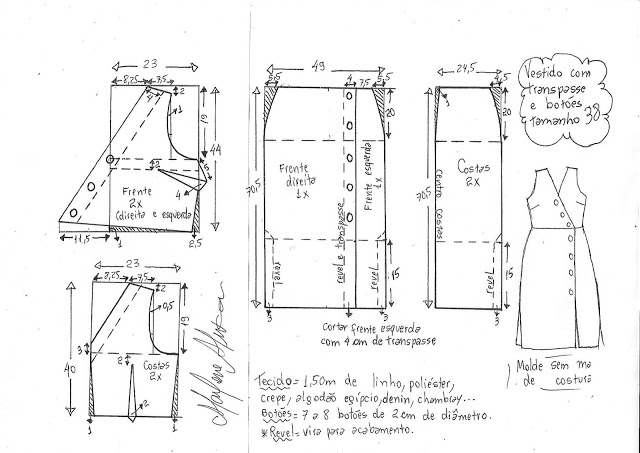 23
8,25
7,5
2
4
1
19
44
7
2
5
4
Frente
2x
(direita e esquerda)
11,5
1
2,5
23
8,25
7,5
2
0,5
19
40
3
2
Costas
2x
2
1
1
49
5,5
4
5,5
28
70,5
Frente
direita
1x
Frente esquerda
1x
revel
revel e transpasse
revel
15
3
3
Cortar frente esquerda
com 4 cm de transpasse
24,5
4,5
3
20
70,5
Costas
2x
centro costas
revel
15
3
Vestido com
transpasse
e botões
tamanho 38
Molde sem ma
de costura
Tecido = 1,50m de linho, poliéster,
crepe, algodão egípcio, denin, chambray...
Botões = 7 a 8 botões de 2 cm de diâmetro.
*Revel = vira para acabamento.